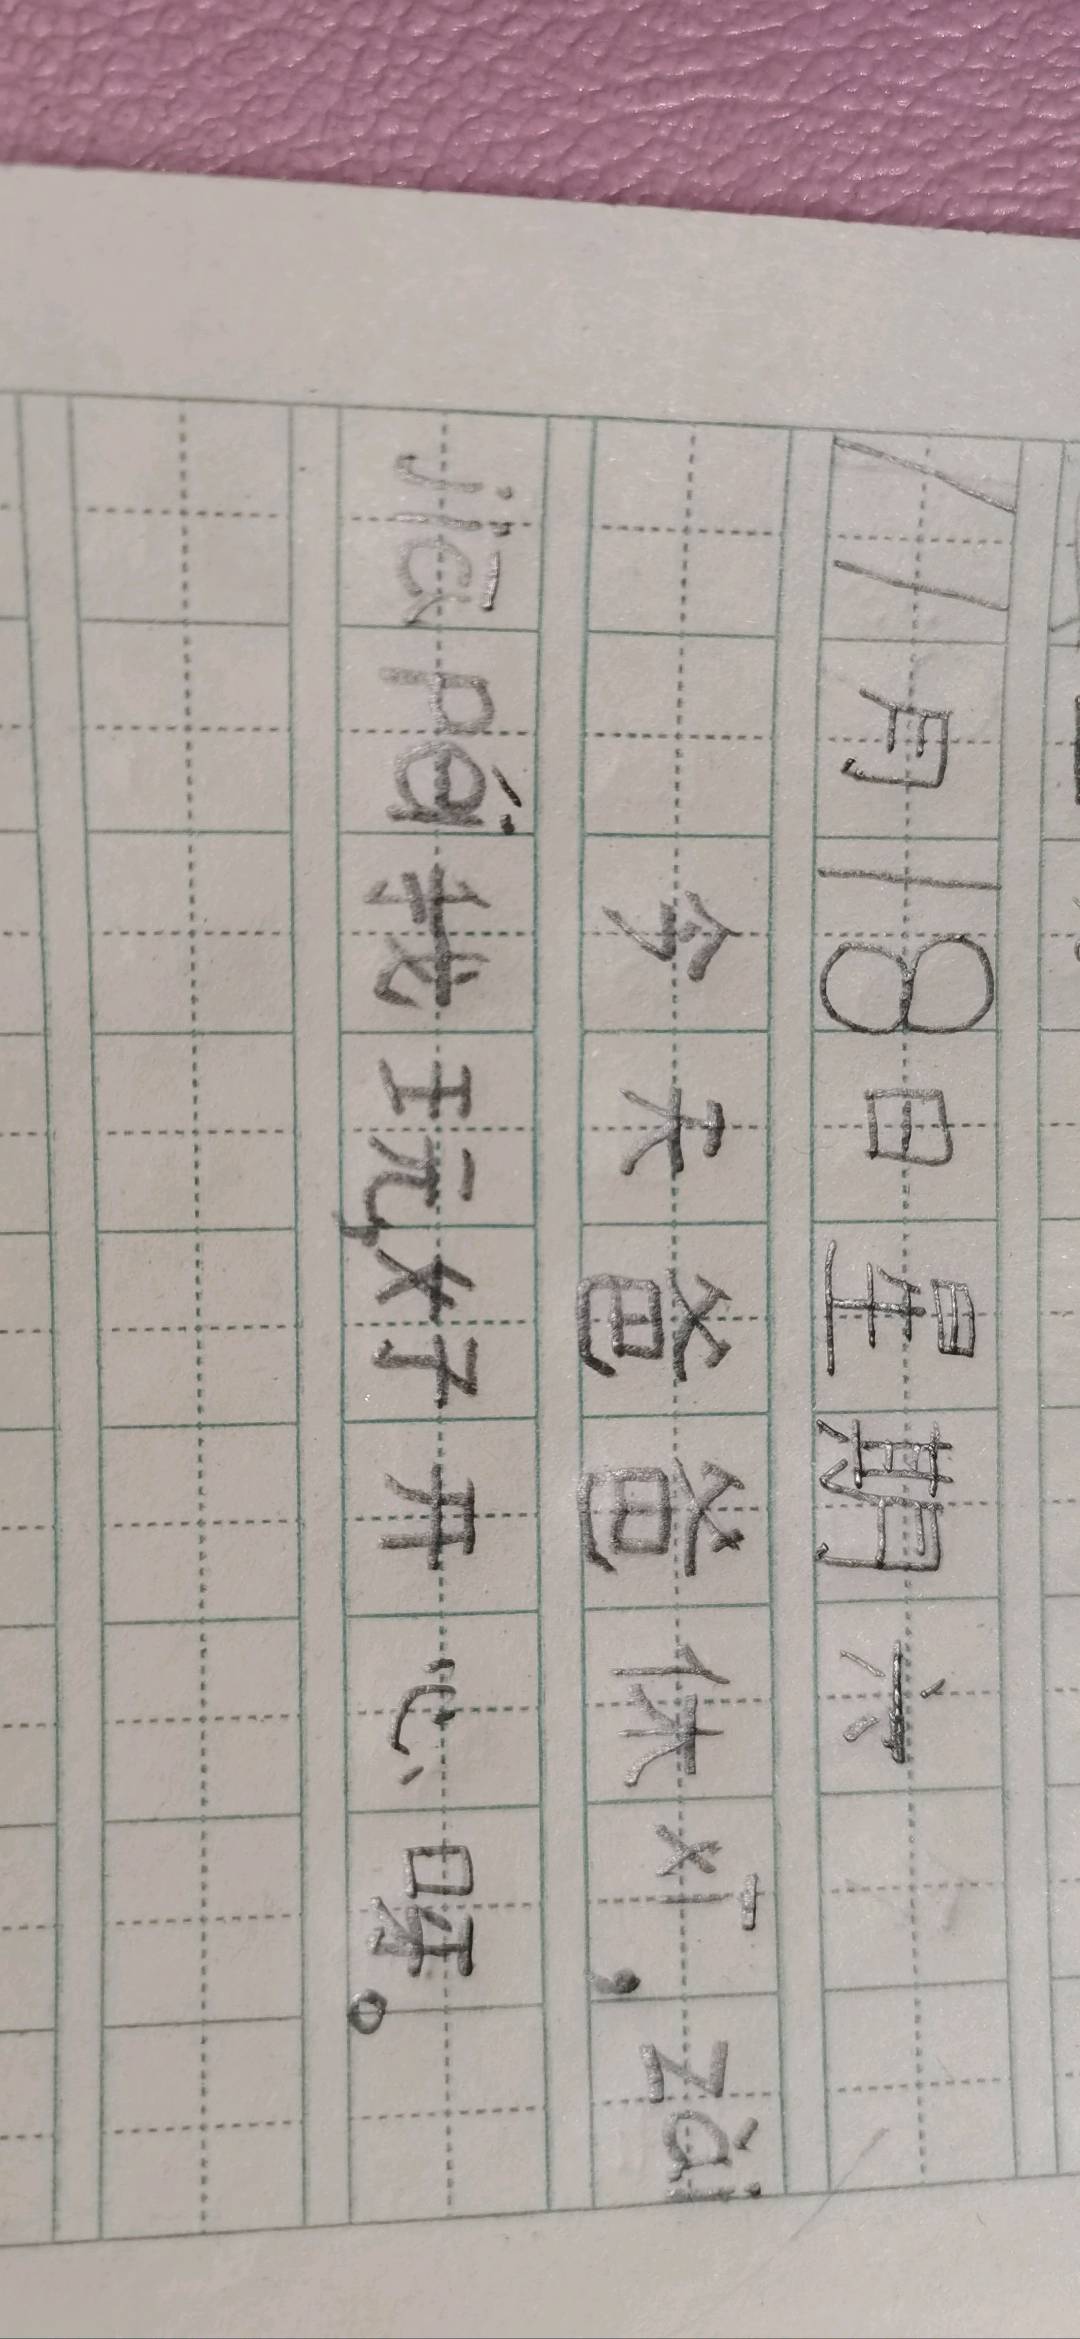 11月18日星期六
今天爸爸休xī，zài
jiā péi我玩，好开心呀。